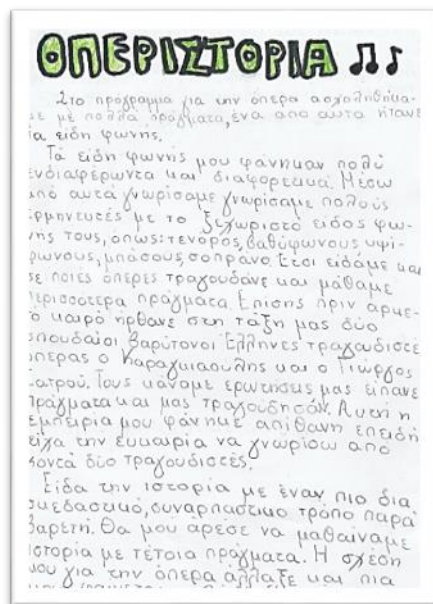 ΟΠΕΡΙΣΤΟΡΙΑ
Στο πρόγραμμα για την όπερα ασχοληθήκα-
ε με πολλά πράγματα, ένα από αυτά ήτανε
α είδη φωνής.
Τα είδη φωνής μου φάνηκαν πολύ
νδιαφέρωντα και διαφορετικά. Μέσω
πό αυτά γνωρίσαμε γνωρίσαμε πολλούς
ρμηνευτές με το ξεχωριστό είδος φω-
νής τους, όπως: τενόρος, βαθύφωνους υψί-
φωνους, μπάσους, σοπράνο. Έτσι είδαμε και
σε ποιές όπερες τραγουδάνε και μάθαμε
περισσότερα πράγματα. Επίσης πριν αρκε-
ό καιρό ήρθανε στη τάξη μας δύο
σπουδαίοι βαρύτονοι Έλληνες τραγουδιστέ
όπερας ο Καραγιαούλης και ο Γιώργος
ατρού. Τους κάναμε ερωτήσεις μας είπανε
πράγματα και μας τραγούδησαν. Αυτή η
εμπειρία μου φάνηκε απίθανη επειδή
είχα την ευκαιρία να γνωρίσω από
κοντά δύο τραγουδιστές.
Είδα την ιστορία με έναν πιο δια
σκεδαστικό, συναρπαστικό τρόπο παρά
βαρετή. Θα μου άρεσε να μαθαίναμε
ιστορία με τέτοια πράγματα. Η σχέση
μου για την όπερα άλλαξε και πια